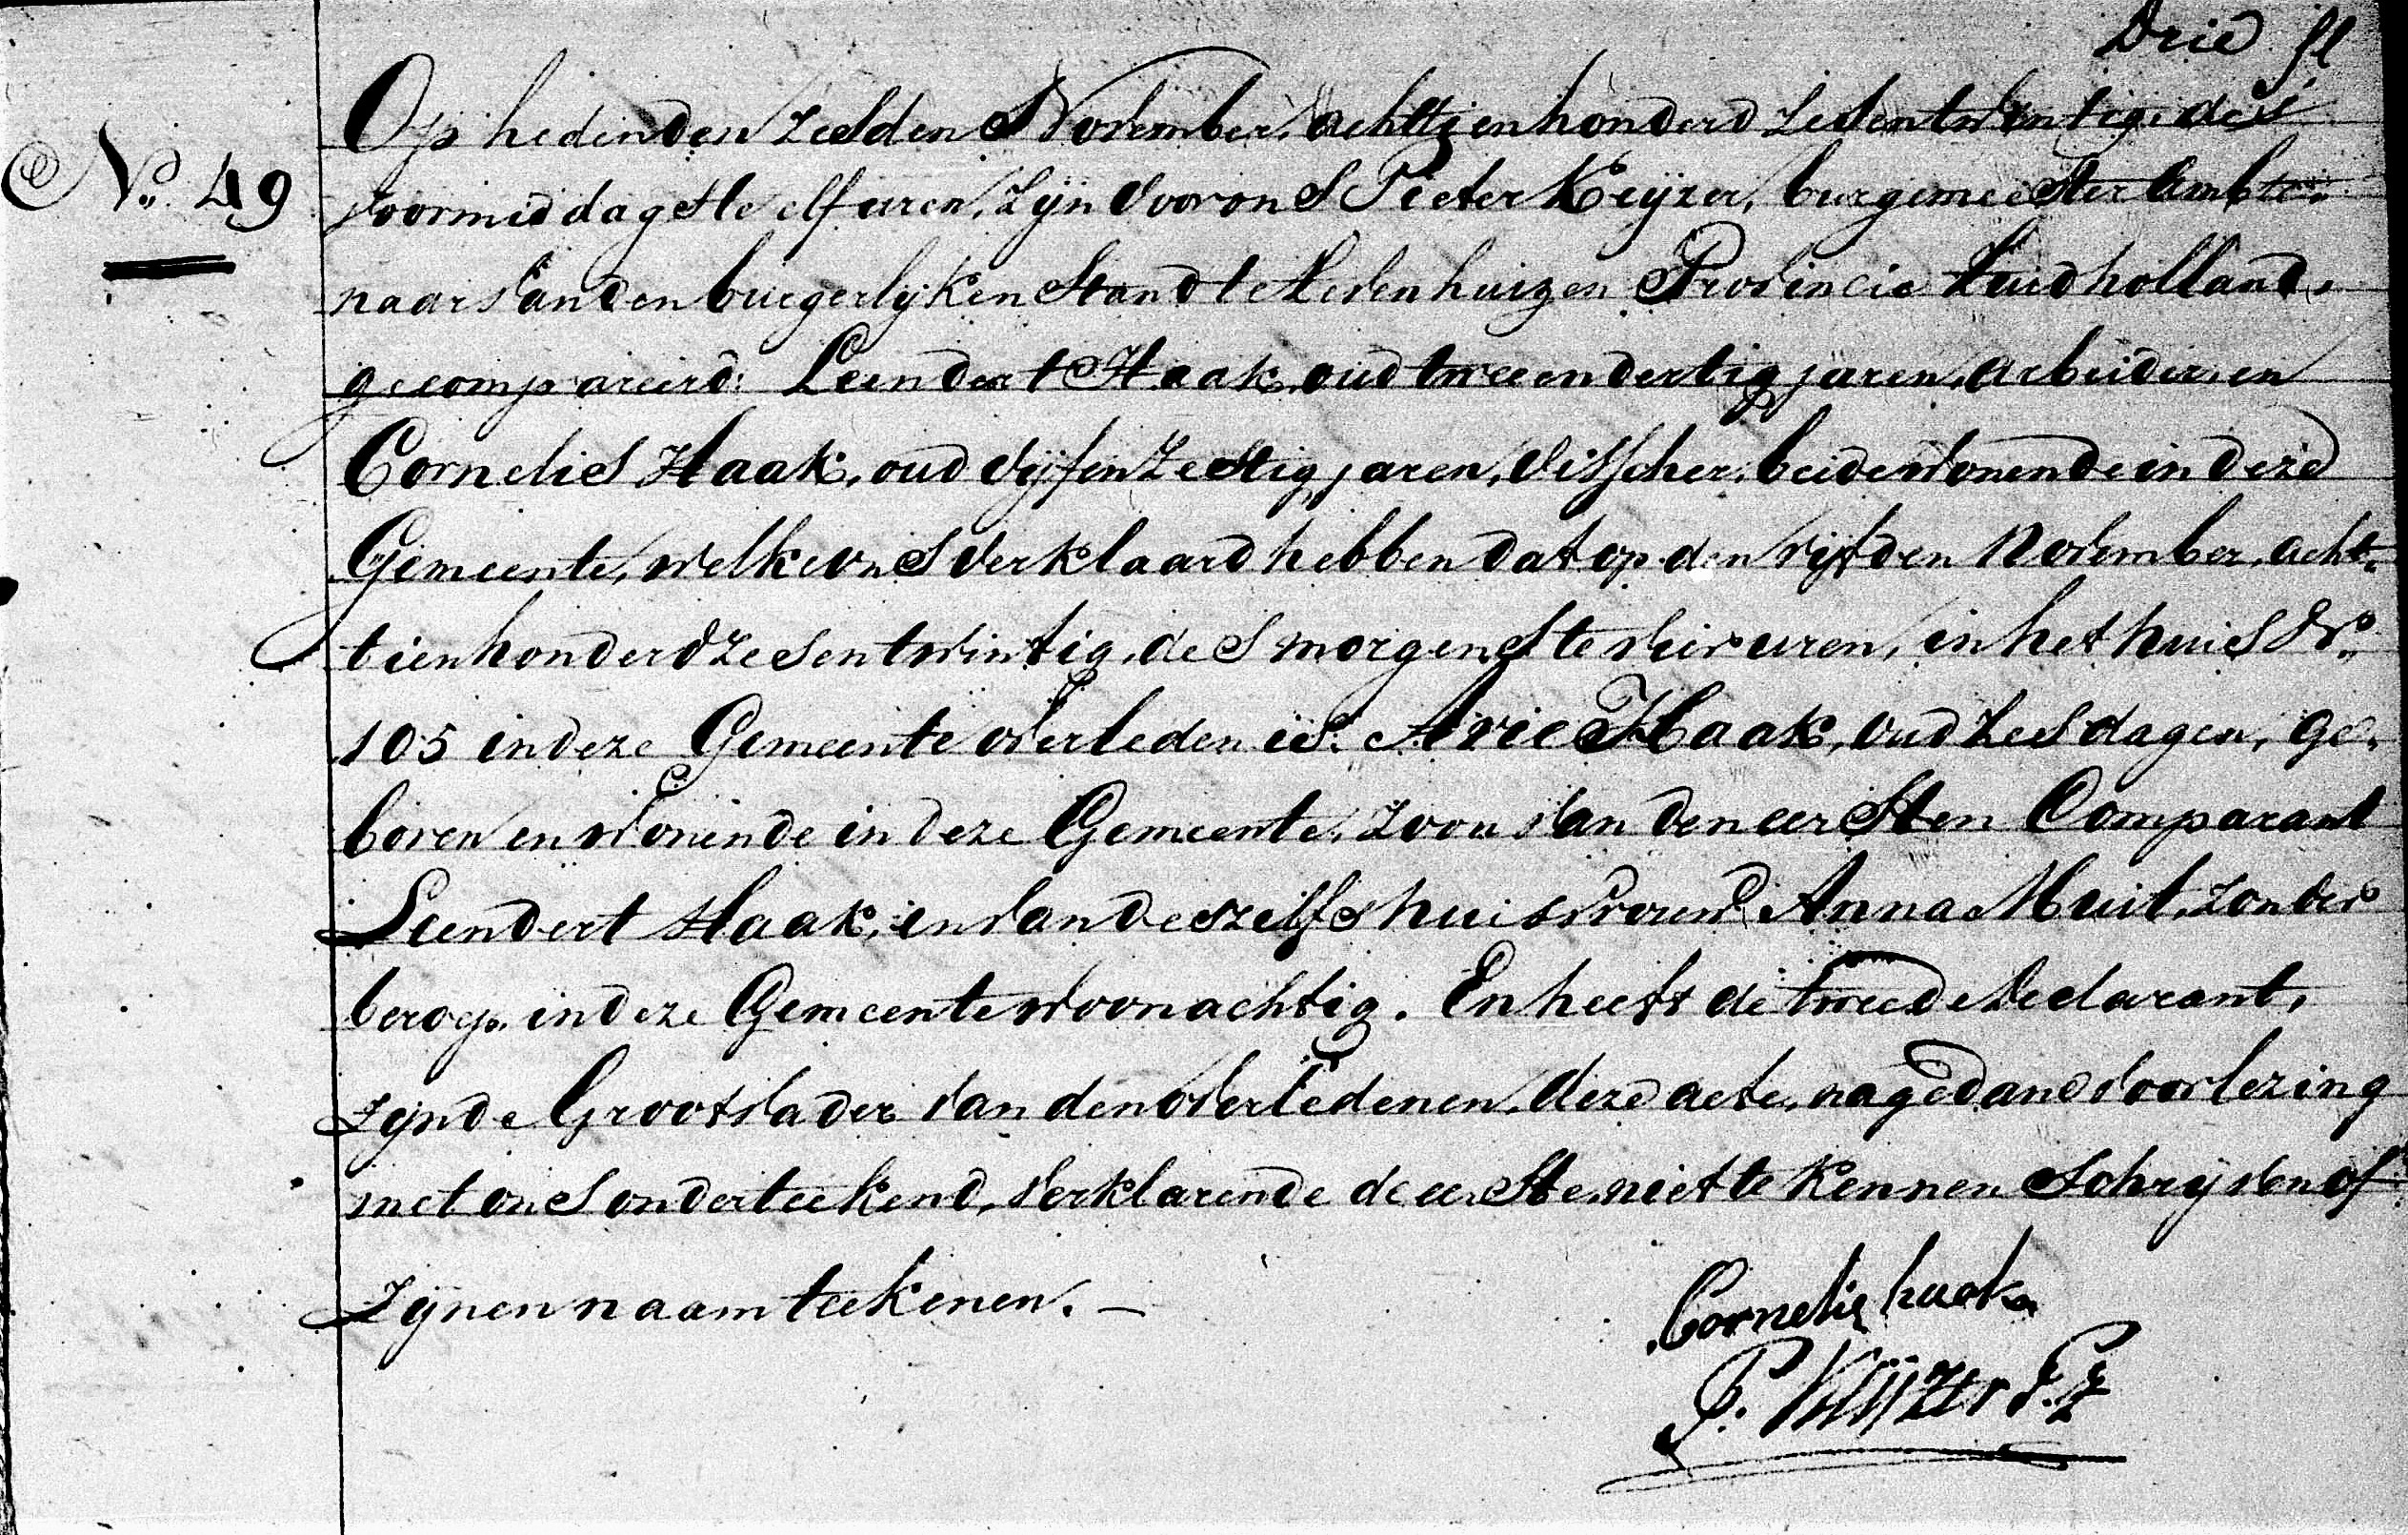 Drie
Op heden den zesden November, achttienhonderd zesentwintig, des
No. 49
voormiddags te elf uren, zijn voor ons Pieter Keijzer, burgemeester Ambte-
naar van den burgerlyken Stand te Nedenhuizen Provincie Zuidholland,
gecompareerd: Leendert Haak, oud twee en dertig jaren, arbeider, en
Cornelis Haak, oud vijfenzestig jaren, visscher, beide wonende in deze
Gemeente, welke ons verklaard hebben dat op den vijfden November, acht-
tienhonderd zesentwintig, des morgens te vier uren, in het huis No.
105 in deze Gemeente overleden is: Arie Haak, oud zes dagen, ge-
boren en wonende in deze Gemeente, zoon van den eersten Comparant
Leendert Haak, en van deszelfs huisvrouw Anna Muit, zonder
beroep, in deze Gemeente woonachtig. En heeft de tweede declarant,
zijnde Grootvader van den overledenen, deze acte, na gedane voorlezing
met ons onderteekend, verklarende de eerste niet te kennen schrijven of
zijnen naam teekenen. —
Cornelis haak
P. Keijzer Pz